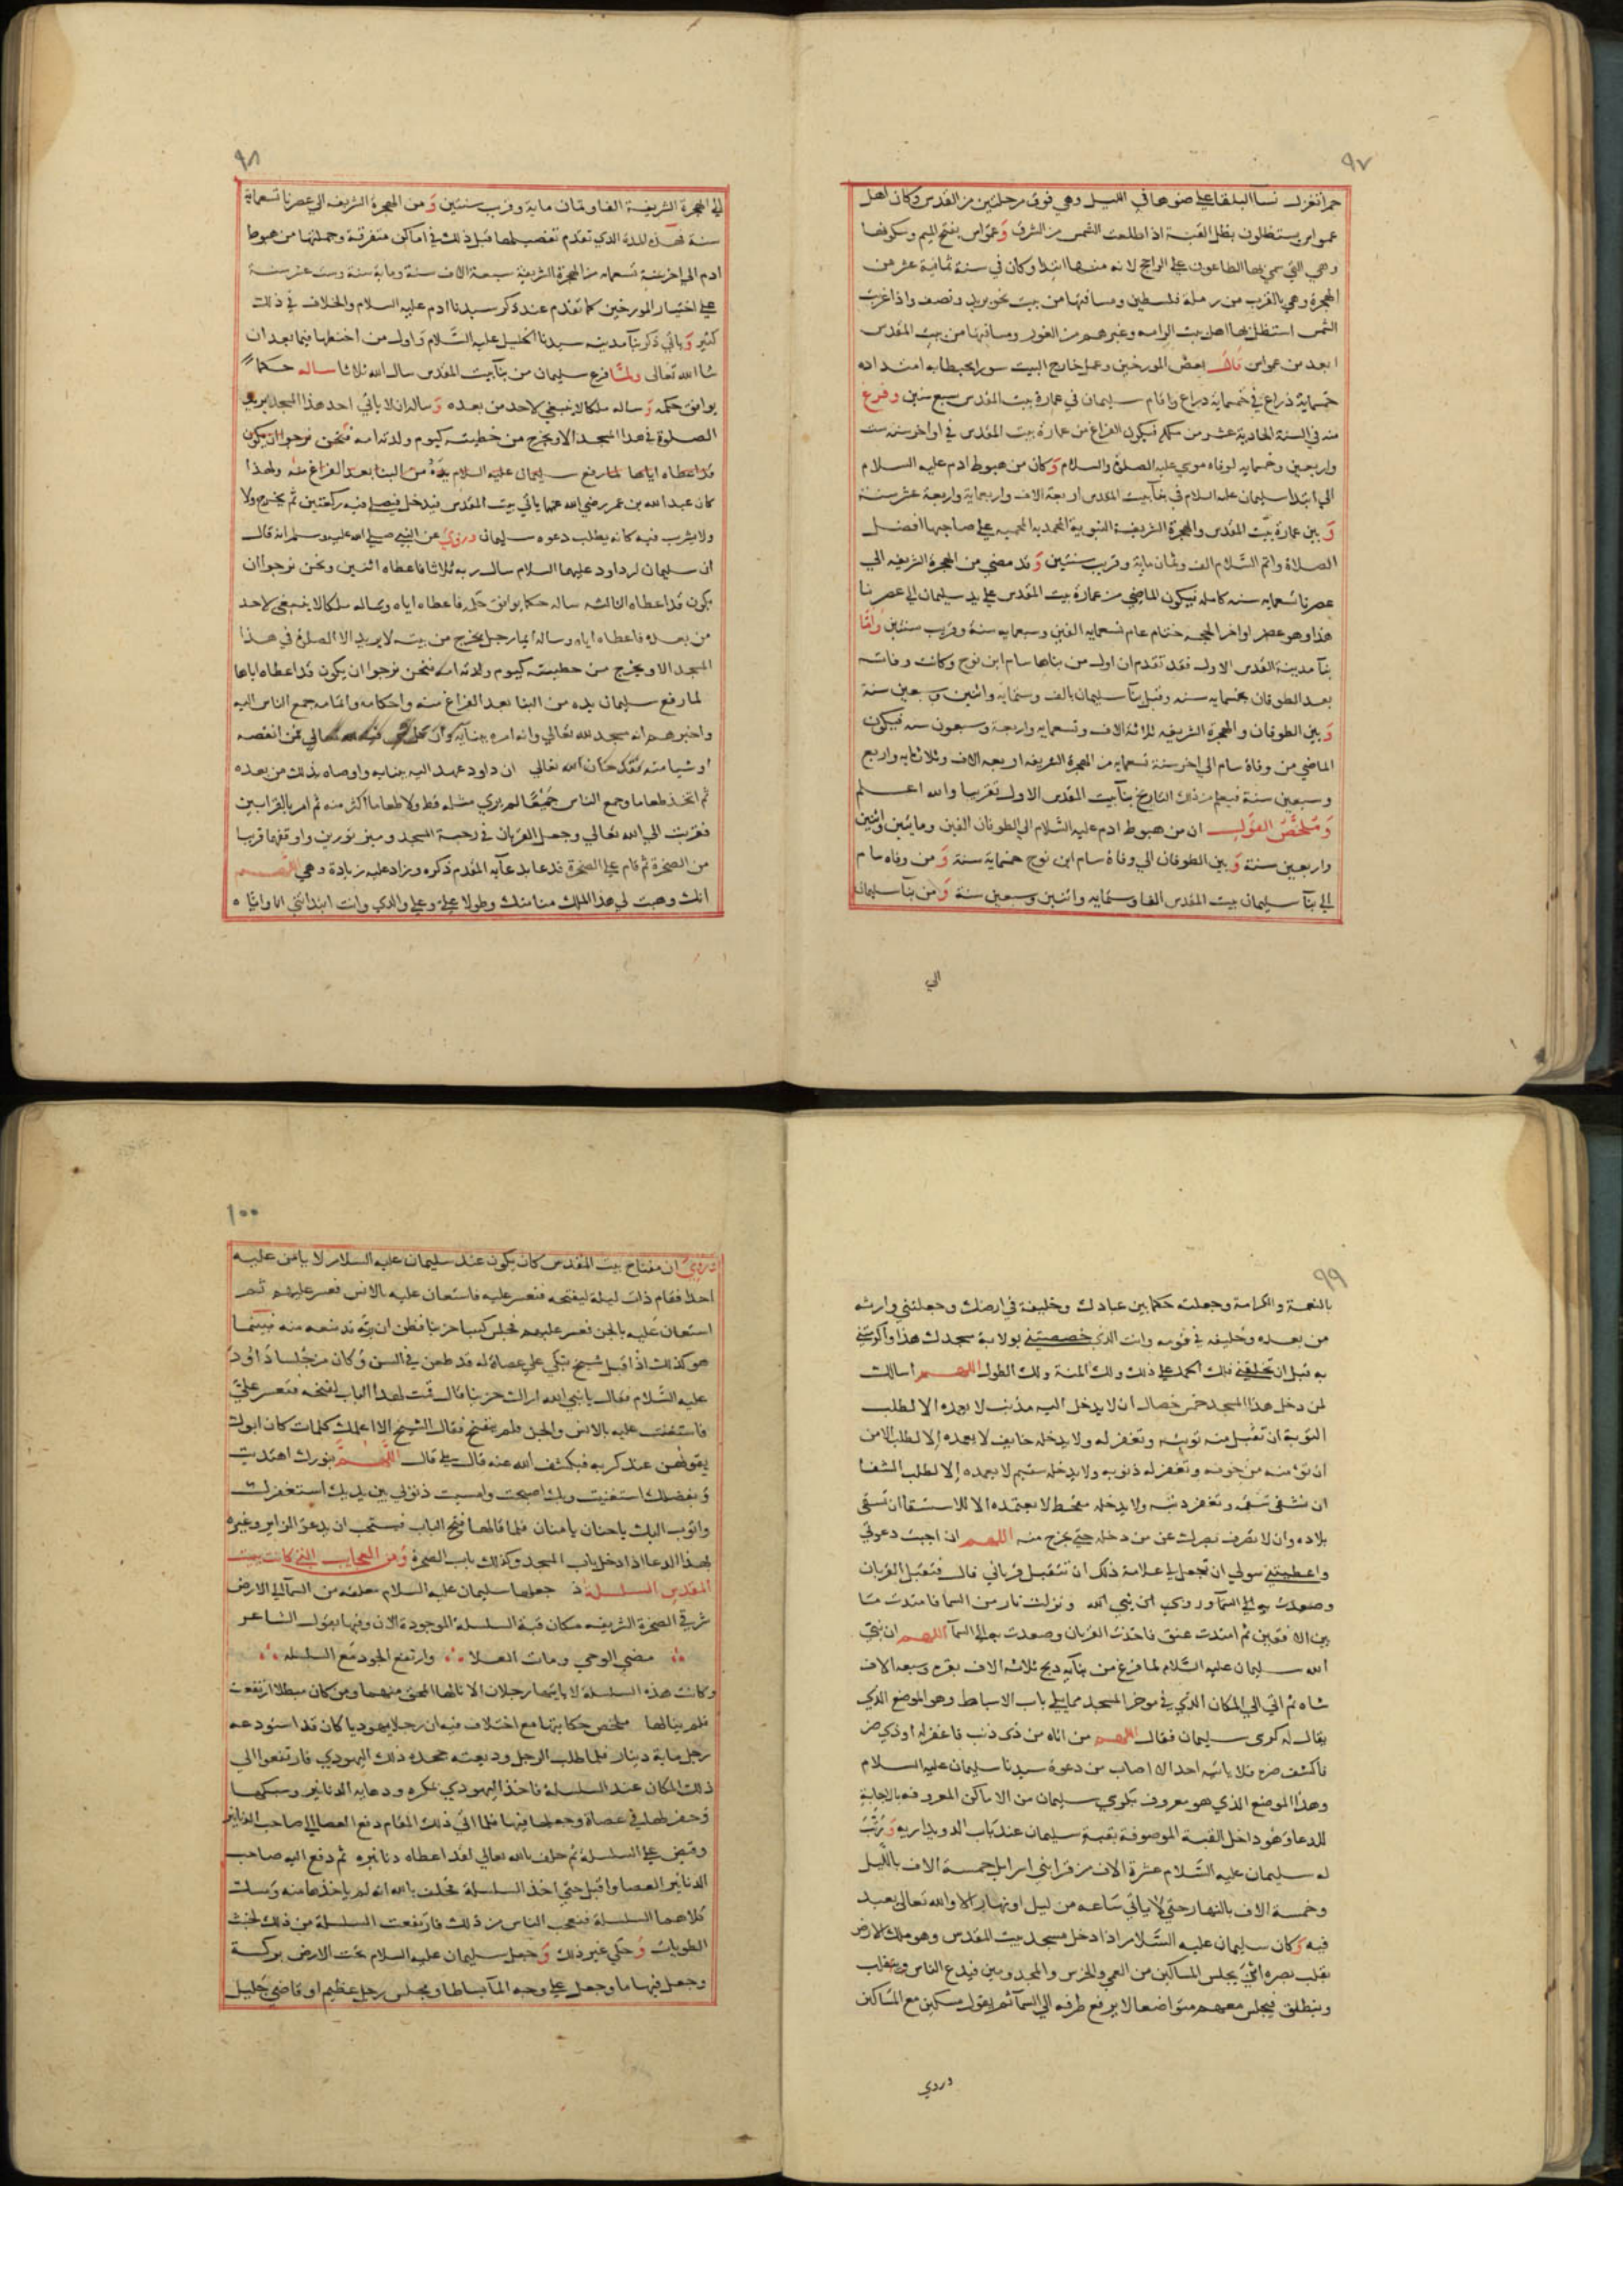 ٩٧
حمرا تغزل نسا البلقا على ضوها في الليل وهي فوق مرحلتين من القدس وكان اهل
عمواس يستظلون بظل القبة اذا طلعت الشمس من الشرق وعمواس بفتح الميم وسكونها
وهي التي سمي بها الطاعون على الراجح لانه منها ابتدا وكان في سنة ثمانية عشر من
الهجرة وهي بالقرب من رملة فلسطين ومسافتها من بيت نحو بريد ونصف واذا غربت
الشمس استظل بها اهل بيت الرامه وغيرهم من الغور ومسافتها من بيت المقدس
ابعد من عمواس قال بعض المورخين وعمل خارج البيت سورا يحيط به امتداده
خمسماية ذراع في خمسماية ذراع واقام سليمان في عمارة بيت المقدس سبع سنين وفرغ
منه في السنة الحادية عشر من ملكه فيكون الفراغ من عمارة بيت المقدس في اواخر سنه ست
واربعين وخمسمايه لوفاه موسي عليه الصلاة والسلام وكان من هبوط ادم عليه السلام
الي ابتدا سليمان عليه السلام في بنآ بيت المقدس اربعة الاف واربعماية واربعة عشر سنة
وبين عمارة بيت المقدس والهجرة الشريفة النبوية المحمدية علي صاحبها افضل
الصلاة واتم السّلام الف وثمان ماية وقريب سنتين وقد مضي من الهجرة الشريفه الي
عصرنا تسعمايه سنه كامله فيكون الماضي من عمارة بيت المقدس علي يد سليمان الي عصرنا
هذا وهو عصر اواخر الحجه ختام عام تسعمايه الفين وسبعمايه سنة وقريب سنتين وامّا
بنآ مدينة القدس الاول فقد تقدم ان اول من بناها سام ابن نوح وكانت وفاته
بعد الطوفان بخمسمايه سنه وقبل بنآ سليمان بالف وستمايه واثنين وسبعين سنة
وبين الطوفان والهجرة الشريفه ثلاثة الاف وتسعمايه واربعة وسبعون سنه فيكون
الماضي من وفاة سام الي اخر سنة تسعمايه من الهجرة الشريفه اربعة الاف وثلاثمايه واربع
وسبعين سنة فيعلم من ذلك التاريخ بنآ بيت المقدس الاول تقريبا والله اعلم
وملخّص القول ان من هبوط ادم عليه السّلام الي الطوفان الفين ومايتين واثنين
واربعين سنة وبين الطوفان الي وفاة سام ابن نوح خمسماية سنة ومن وفاه سام
الي بنآ سليمان بيت المقدس الفا وستمايه واثنين وسبعين سنة ومن بنآ سليمان
الي
٩٨
الي الهجرة الشريفة الفا وثمان ماية وقريب سنتين ومن الهجرة الشريفه الي عصرنا تسعماية
سنة فهذه المدة الذي تقدم تفصيلها قبل ذلك في اماكن متفرقة وجملتها من هبوط
ادم الي اخر سنة تسعمايه من الهجرة الشريفة سبعة الاف سنة وماية سنة وست عشر سنة
علي اختيار المورخين كما تقدم عند ذكر سيدنا ادم عليه السلام والخلاف في ذلك
كثير وياتي ذكر بنآ مدينه سيدنا الخليل عليه السّلام واول من اختطها فيما بعد ان
شا الله تعالى ولمّا فرغ سليمان من بنآ بيت المقدس سال الله ثلاثا ساله حكما
يوافق حكمه وساله ملكا لا ينبغي لاحد من بعده وساله ان لا ياتي احد هذا المسجد يريد
الصلوة في هذا المسجد الا ويخرج من خطيئته كيوم ولدته امه فنحن نرجوا ان يكون
قد اعطاه اياها لما رفع سليمان عليه السلام يدهُ من البنا بعد الفراغ منه ولهذا
كان عبد الله بن عمر رضي الله عنهما ياتي بيت المقدس فيدخل فيصلي فيه ركعتين ثم يخرج ولا
ولا يشرب فيه كانه يطلب دعوه سليمان وروي عن النبي صلي الله عليه وسلم انه قال
ان سليمان ابن داود عليهما السلام سال ربه ثلاثا فاعطاه اثنين ونحن نرجوا ان
يكون قد اعطاه الثالثه ساله حكما يوافق حكمه فاعطاه اياه وساله ملكا لا ينبغي لاحد
من بعده فاعطاه اياه وساله ايما رجل يخرج من بيته لا يريد الا الصلاة في هذا
المسجد الا ويخرج من خطيئته كيوم ولدته امه فنحن نرجوا ان يكون قد اعطاه اياها
لما رفع سليمان يده من البنا بعد الفراغ منه واحكامه واتمامه جمع الناس اليه
واخبرهم انه مسجد لله تعالي وانه امره ببنآيه وان تعالي من انقصه
او شيا منه فقد خان الله تعالي ان داود عهد اليه ببنايه واوصاه بذلك من بعده
ثم اتخذ طعاما وجمع الناس جميعًا لم ير مثله قط ولا طعاما اكثر منه ثم امر بالقرابين
فقربت الي الله تعالي وجعل القربان في رحبة المسجد وميز ثورين واوقفهما قريبا
من الصخرة ثم قام علي الصخرة فدعا بدعآيه المقدم ذكره وزاد عليه زيادة وهي اللهم
انت وهبت لي هذا الملك منا منك وطولا علي وعلي والدي وانت ابتداتني
٩٩
بالنعمة والكرامة وجعلته حكما بين عبادك وخليفة في ارضك وجعلتني وارثه
من بعده وخليفه في قومه وانت الذي خصصتني بولاية مسجدك هذا واكرمتني
به قبل ان تخلقني فلك الحمد علي ذلك ولك المنة ولك الطول اللهم اسالك
لمن دخل هذا المسجد خمس خصال ان لا يدخل اليه مذنب لا يعمده الا لطلب
التوبة ان تقبل منه توبته وتغفر له ولا يدخله خايف لا يعمده إلا لطلب الامن
ان تؤمنه من خوفه وتغفر له ذنوبه ولا يدخله سقيم لا يعمده إلا لطلب الشفا
ان تشفي سقمه وتغفر ذنبه ولا يدخله مقحط لا يعتمده الا للاستسقا ان تسقي
بلاده وان لا تصرف بصرك عن من دخله حتي يخرج منه اللهم ان اجبت دعوتي
واعطيتني سولي ان تجعل لي علامة ذلك ان تتقبل قرباني قال فتقبل القربان
وصعدت به الي السمآ وروي ان نبي الله ونزلت نار من السما فامتدت ما
بين الافقين ثم امتدت عنق فاخذت القربان وصعدت به الي السمآ اللهم ان نبي
الله سليمان عليه السّلام لما فرغ من بنآيه ذبح ثلاثه الاف بقره وسبعه الاف
شاه ثم اتي الي المكان الذي في موخر المسجد مما يلي باب الاسباط وهو الموضع الذي
يقال له كرسي سليمان فقال اللهم من اتاه من ذي ذنب فاغفر له او ذي ضر
فاكشف ضره فلا ياتيه احد الا اصاب من دعوة سيدنا سليمان عليه السلام
وهذا الموضع الذي هو معروف بكرسي سليمان من الاماكن المعروفه بالاجابة
للدعا وهو داخل القبة الموصوفة بقبة سليمان عند باب الدويداريه ورتّب
له سليمان عليه السّلام عشرة الاف من قرا بني اسرايل خمسة الاف بالليل
وخمسة الاف بالنهار حتي لا ياتي ساعه من ليل او نهار الا والله تعالي يعبد
فيه وكان سليمان عليه السّلام اذا دخل مسجد بيت المقدس وهو ملك الارض
يقلب بصره اين يجلس المساكين من العمي والخرس والمجذومين فيدع الناس
وينطلق فيجلس معهم متواضعا لا يرفع طرفه الي السمآ ثم يقول مسكين مع المساكين
وروي
١٠٠
وروي ان مفتاح بيت المقدس كان يكون عند سليمان عليه السلام لا يامن عليه
احدا فقام ذات ليلة ليفتحه فتعسر عليه فاستعان عليه بالانس فعسر عليهم ثم
استعان عليه بالجن فعسر عليهم فجلس كييبا حزينا فظن ان ربه قد منعه منه فبينما
هو كذلك اذ اقبل شيخ يتكي علي عصاة له قد طعن في السن وكان من جُلسا داود
عليه السّلام فقال يا نبي الله اراك حزينا فقال قمت لهذا الباب لافتحه فتعسر علي
فاستعنت عليه بالانس والجن فلم يفتح فقال الشيخ الا اعلمك كلمات كان ابوك
يقولهن عند كربه فيكشف الله عنه قال بلي قال اللهم بنورك اهتديت
وبفضلك استغنيت وبك اصبحت وامسيت ذنوبي بين يديك استغفرك
واتوب اليك يا حنان يا منان فلما قالها فتح الباب فيستحب ان يدعو الزاير وغيره
بهذا الدعا اذا دخل باب المسجد وكذلك باب الصخرة ومن العجايب التي كانت ببيت
المقدس السلسلة جعلها سليمان عليه السلام معلقه من السمآ الي الارض
شرقي الصخرة الشريفه مكان قبة السلسلة الموجودة الان وفيها يقول الشاعر
مضي الوحي ومات العلا وارتفع الجود مع السلسله
وكانت هذه السلسلة لا ياتيها رجلان الا نالها المحق منهما ومن كان مبطلا ارتفعت
فلم ينالها ملخص حكايتها مع اختلاف فيه ان رجلا يهوديا كان قد استودعه
رجل ماية دينار فلما طلب الرجل وديعته جحده ذلك اليهودي فارتفعوا الي
ذلك المكان عند السلسلة فاخذ اليهودي بمكره ودهايه الدنانير وسبكها
وحفر لها في عصاة وجعلها فيها فلما اتي ذلك المقام دفع العصا الي صاحب الدنانير
وقبض علي السلسلة ثم حلف بالله تعالي لقد اعطاه دنانيره ثم دفع اليه صاحب
الدنانير العصا واقبل حتي اخذ السلسلة فحلف بالله انه لم ياخذها منه ومسك
كلاهما السلسلة فتعجب الناس من ذلك فارتفعت السلسلة من ذلك لخبث
الطويات وحكي غير ذلك وجعل سليمان عليه السلام تحت الارض بركة
وجعل فيها ما وجعل علي وجه المآ بساطا ومجلس رجل عظيم او قاضي جليل